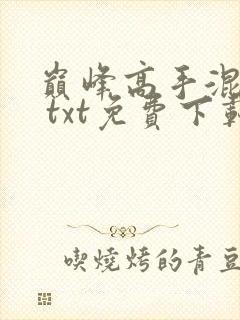 巔峰高手混
txt免費下載
喫燒烤的青豆